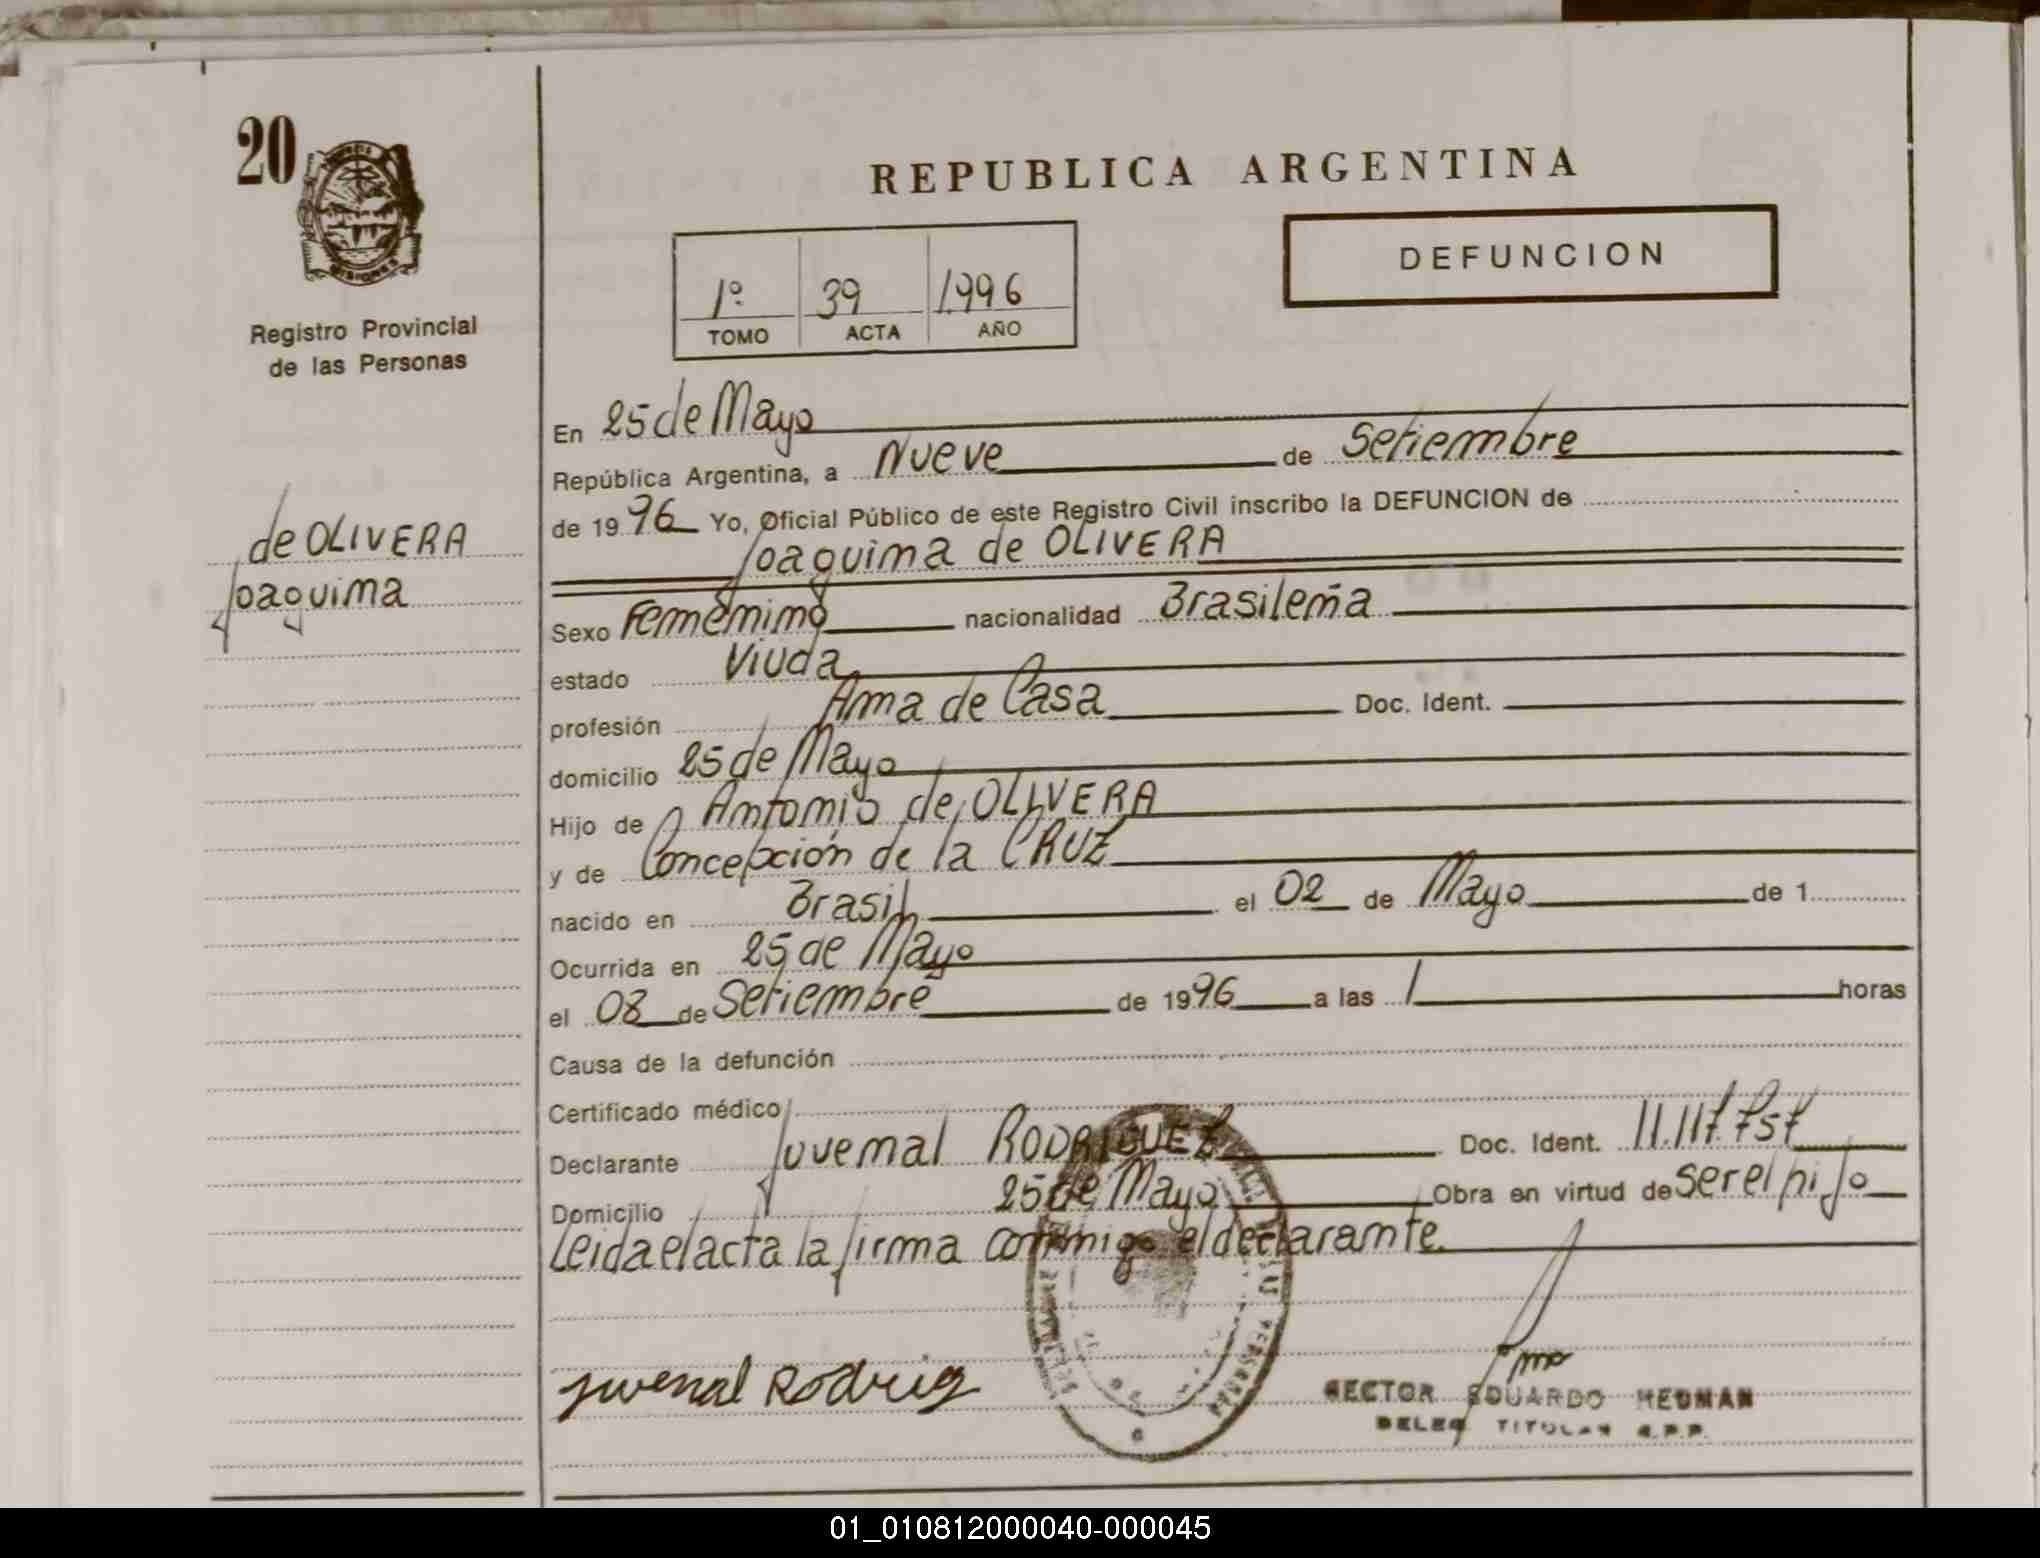 20
MISIONES
Registro Provincial
de las Personas
de OLIVERA
Joaquima
REPUBLICA ARGENTINA
DEFUNCION
1º 39 1.996
TOMO ACTA AÑO
En 25 de Mayo
República Argentina, a Nueve de Setiembre
de 1996 Yo, Oficial Público de este Registro Civil inscribo la DEFUNCION de
Joaquima de OLIVERA
Sexo Femenimo nacionalidad Brasileña
estado Viuda
profesión Ama de Casa Doc. Ident.
domicilio 25 de Mayo
Hijo de Antomio de OLIVERA
y de Concepción de la CRUZ
nacido en Brasil el 02 de Mayo de 1
Ocurrida en 25 de Mayo
el 08 de Setiembre de 1996 a las 1 horas
Causa de la defunción
Certificado médico
Declarante Juvemal RODRIGUEZ Doc. Ident.
Domicilio 25 de Mayo Obra en virtud de ser el hijo
Leida el acta la firma conmigo el declarante.
juvenal Rodrig
HECTOR EDUARDO HEDMAN
DELEG. TITULAR R.P.P.
01_010812000040-000045